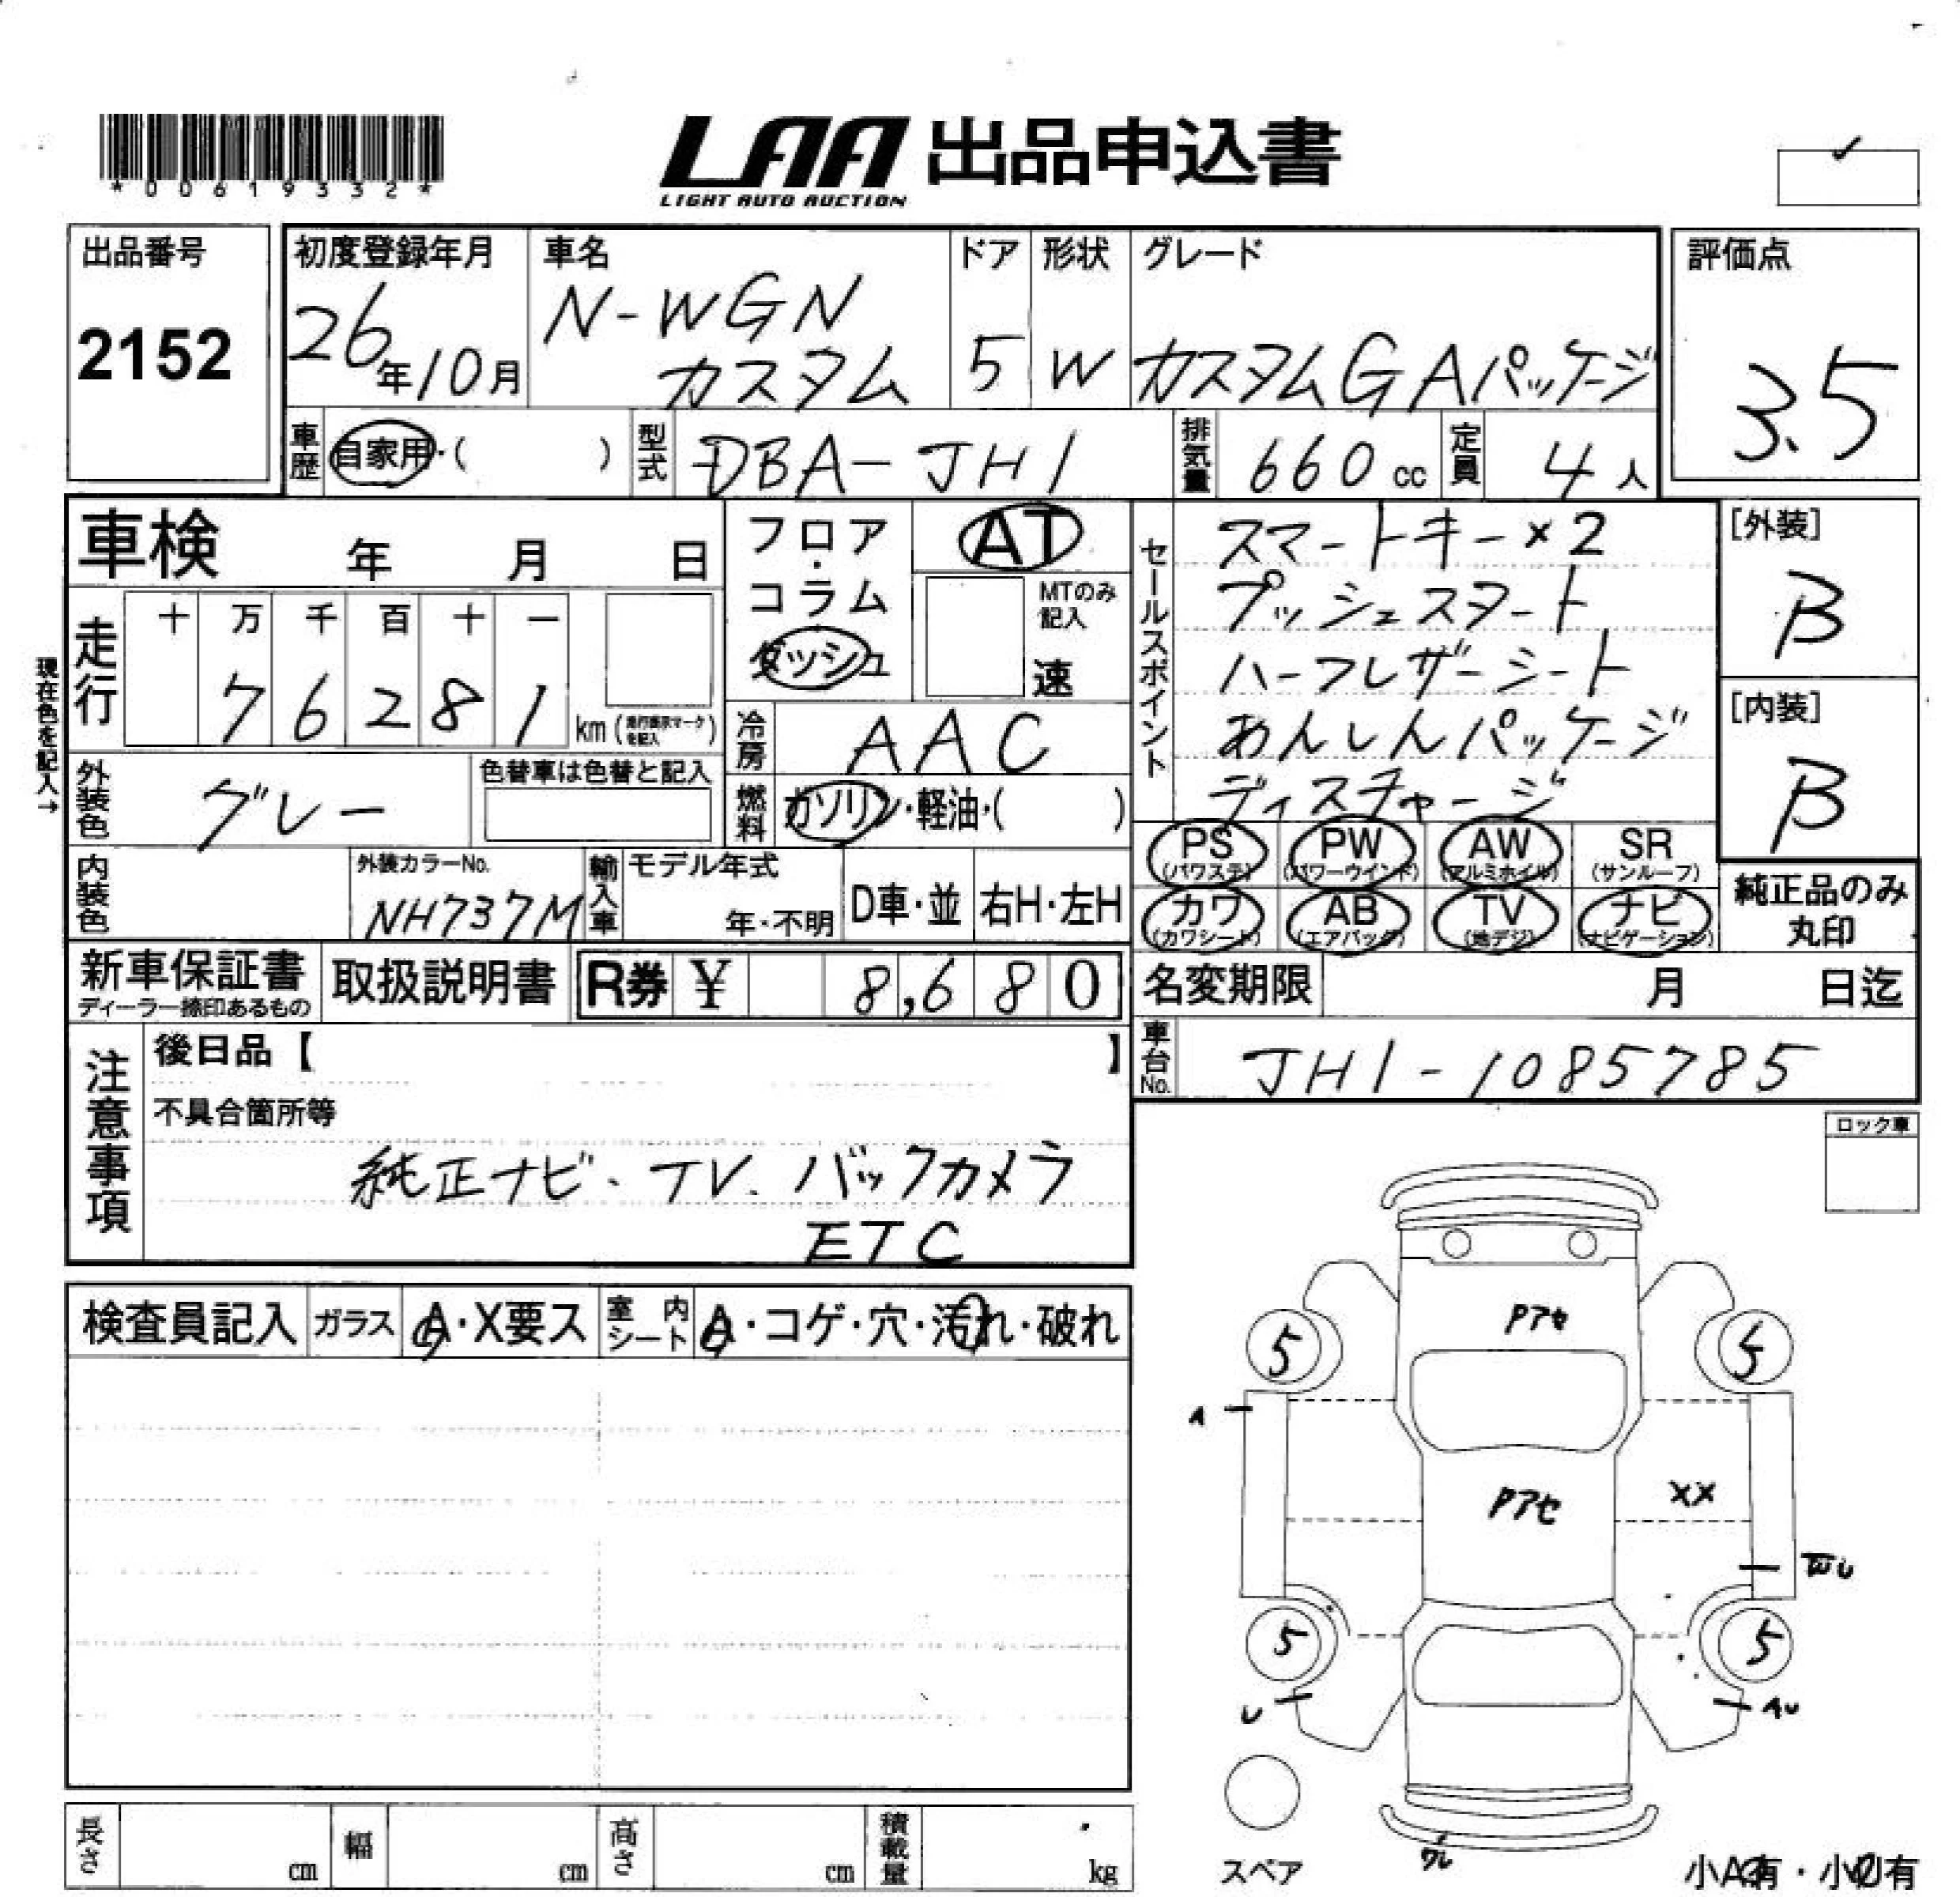 LAA 出品申込書
LIGHT AUTO AUCTION
*00619332*
出品番号
2152
初度登録年月
26年10月
車名
N-WGN
カスタム
ドア
5
形状
W
グレード
カスタムG Aパッケージ
評価点
3.5
車歴 自家用・( )
型式 DBA-JH1
排気量 660 cc
定員 4人
車検 年 月 日
フロア・コラム
ダッシュ
AT
MTのみ記入
速
走行 十 万 千 百 十 一
7 6 2 8 1 km (走行表示マークを記入)
冷房 AAC
現在色を記入→
外装色 グレー
色替車は色替と記入
燃料 ガソリン・軽油・( )
内装色
外装カラーNo.
NH737M
輸入車 モデル年式
年・不明
D車・並 右H・左H
セールスポイント
スマートキー×2
プッシュスタート
ハーフレザーシート
あんしんパッケージ
ディスチャージ
[外装]
B
[内装]
B
PS (パワステ) PW (パワーウインド) AW (アルミホイル) SR (サンルーフ)
カワ (カワシート) AB (エアバッグ) TV (地デジ) ナビ (ナビゲーション)
純正品のみ
丸印
新車保証書
ディーラー捺印あるもの
取扱説明書
R券 ¥ 8,680
名変期限 月 日迄
車台No. JH1-1085785
注意事項
後日品【 】
不具合箇所等
純正ナビ、TV、バックカメラ
ETC
ロック車
検査員記入 ガラス A・X要ス 室内シート A・コゲ・穴・汚れ・破れ
Pアセ
5
5
A
Pアセ
XX
5
5
U
AU
スペア
小A有・小U有
長さ cm 幅 cm 高さ cm 積載量 kg